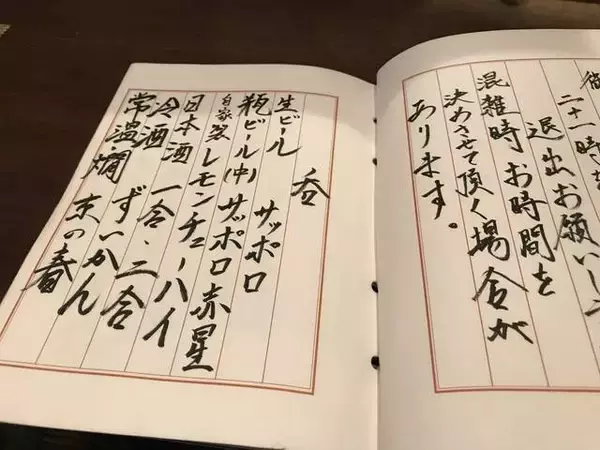 二十一時を
退出お願いし
混雑時 お時間を
決めさせて頂く場合が
あります。
呑
生ビール サッポロ
瓶ビール(中) サッポロ赤星
自家製レモンチューハイ
日本酒 一合、二合
冷酒 ずいかん
常温燗 京の春